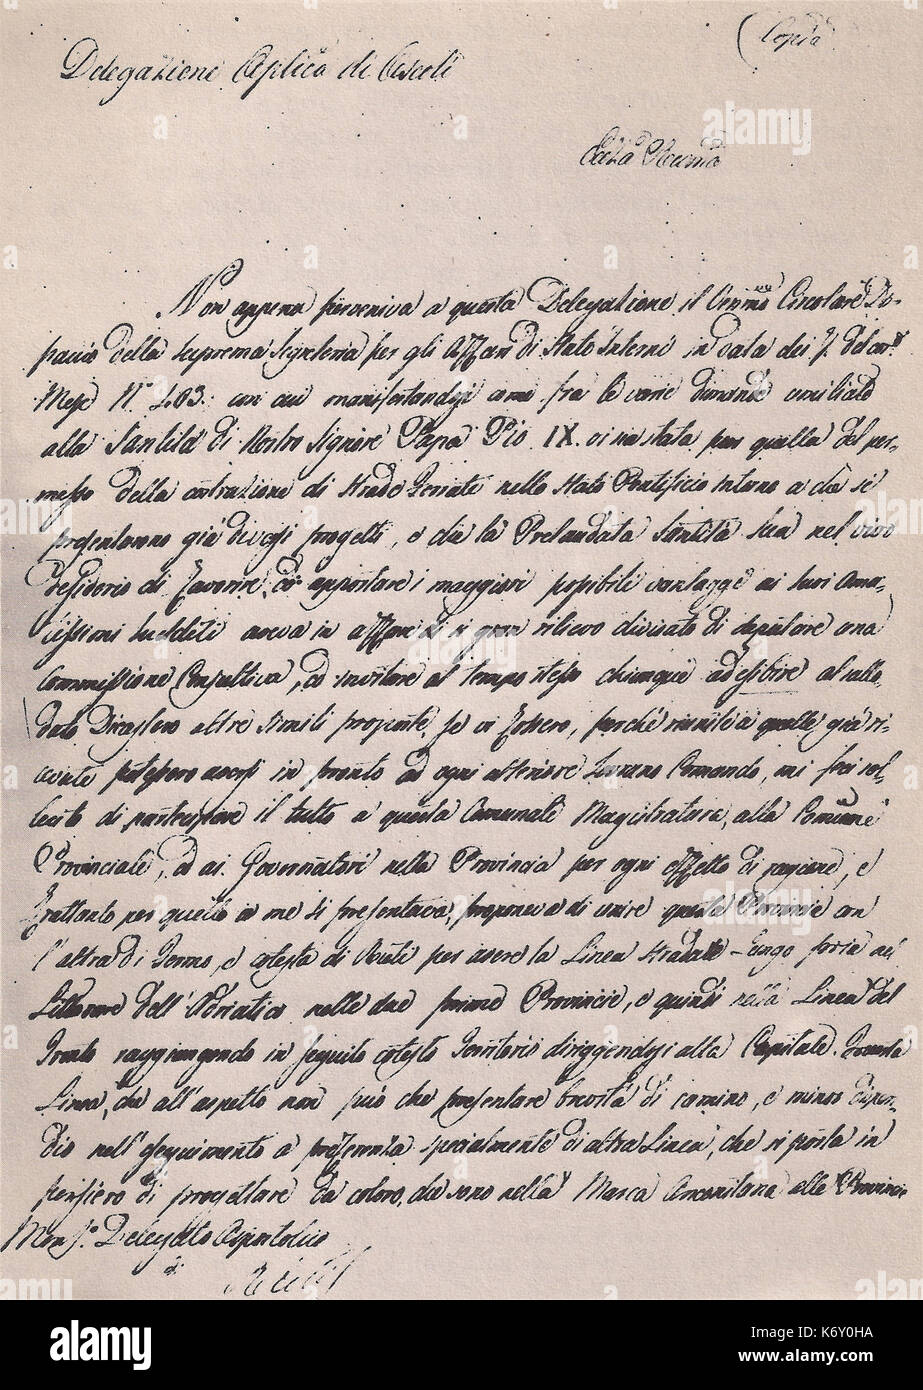 (Copia
Delegazione Aplica di Ascoli
Ecc.za R.ma
Non appena perveniva a questa Delegazione il Circolare Di-
spaccio della suprema Segreteria per gli Affari di Stato Interni in data dei 7. del corr.
Mese N.° 403: con cui manifestandosi come fra le varie dimande umiliate
alla Santità di Nostro Signore Papa Pio IX. vi sia stata pur quella del per-
messo della costruzione di Strade Ferrate nello Stato Pontificio intorno a che si
presentarono già diversi progetti, e che la Prelaudata Santità Sua nel vivo
desiderio di favorire, ed apportare i maggiori possibili vantaggi ai suoi Ama-
tissimi sudditi aveva in affare di sì gran rilievo divisato di deputare una
Commissione Consultiva, ed invitare al tempo stesso chiunque ad esibire al sullo-
dato Dicastero altre simili proposte, se vi fossero, perchè riunite a quelle già ri-
cevute potessero aversi in pronto ad ogni ulteriore Sovrano Comando, mi feci sol-
lecito di partecipare il tutto a questa Comunale Magistratura, alla Comm.e
Provinciale, ed ai Governatori nella Provincia per ogni effetto di ragione, e
frattanto per quello a me si presentava, proponeva di unire questa Provincia con
l'altra di Fermo, e cotesta di Rieti per avere la Linea stradale lungo pria nel
Littorale dell'Adriatico nelle due prime Provincie, e quindi nella Linea del
Tronto raggiungendo in seguito cotesto Territorio diriggendosi alla Capitale. Questa
Linea, che all'aspetto non può che presentare brevità di camino, e minor dispen-
dio nell'eseguimento a preferenza specialmente di altra Linea, che si porta in
pensiero di progettare da coloro, che sono nella Marca Anconitana alle Provincie
Mons.r Delegato Apostolico
di Rieti
alamy
Image ID: K6Y0HA
www.alamy.com